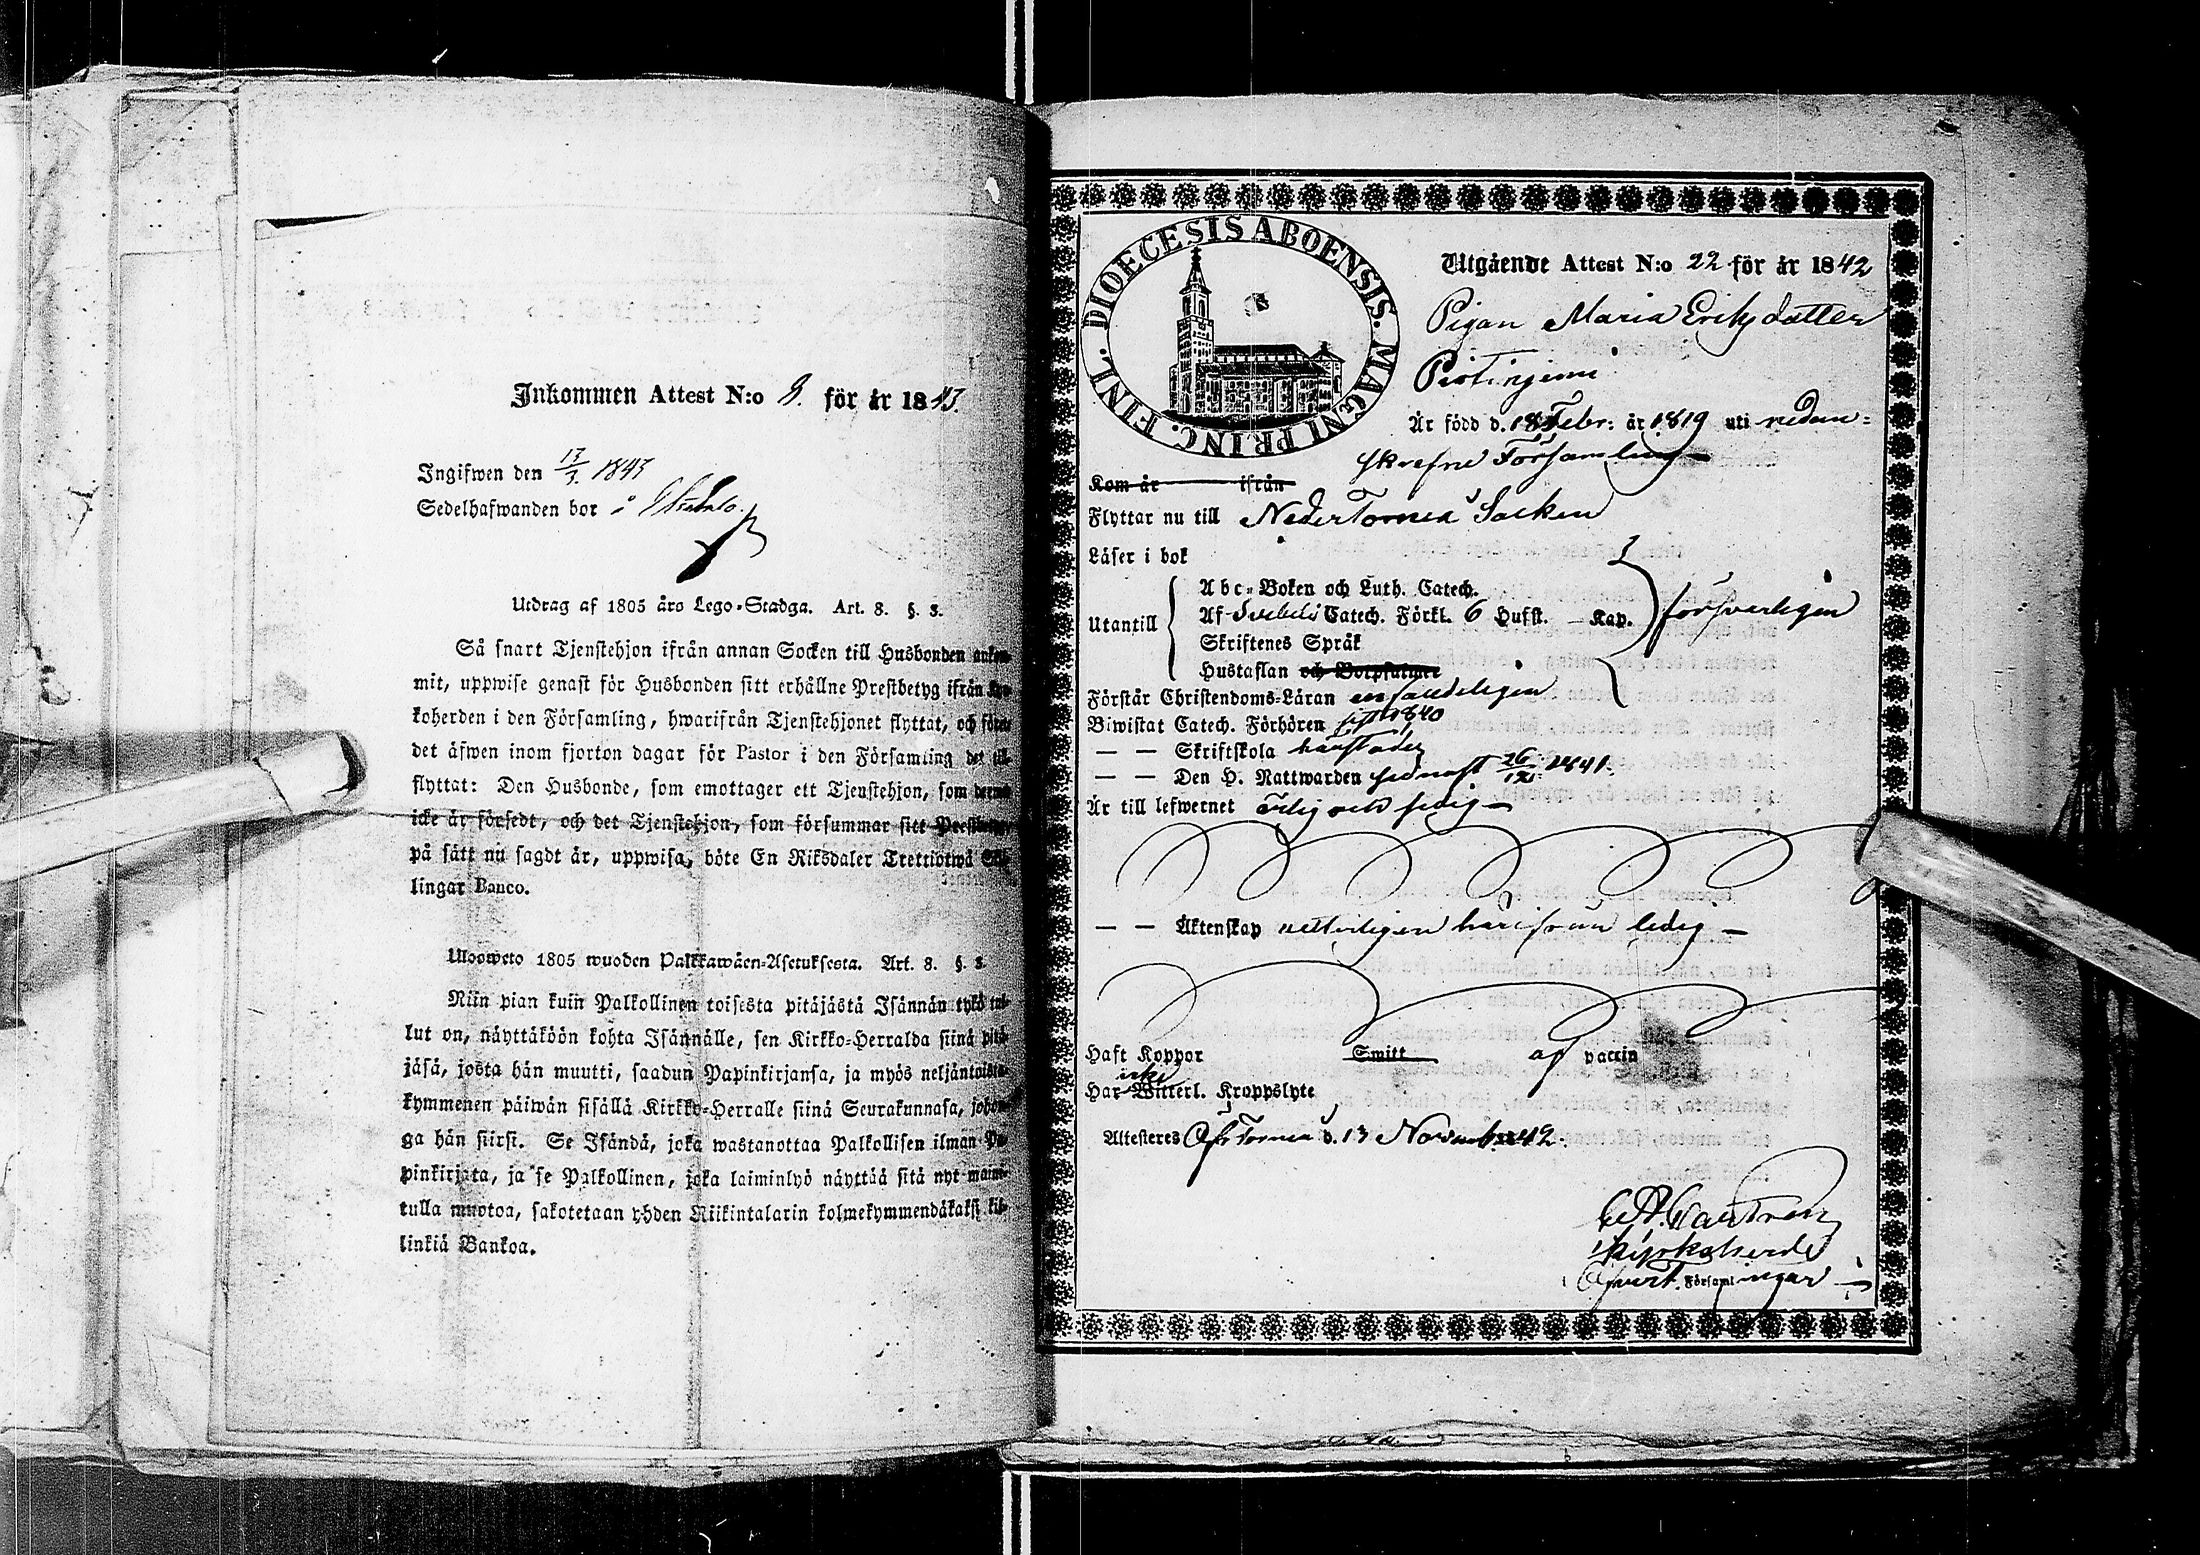 Inkommen Attest N:o 8. för år 1843.
Ingifwen den 13/3. 1843
Sedelhafwanden bor i
Utdrag af 1805 års Lego-Stadga. Art. 8. §. 3.
Så snart Tjenstehjon ifrån annan Socken till Husbonden ankom-
mit, uppwise genast för Husbonden sitt erhållne Prestbetyg ifrån Kyr-
koherden i den Församling, hwarifrån Tjenstehjonet flyttat, och förete
det äfwen inom fjorton dagar för Pastor i den Församling det till-
flyttat: Den Husbonde, som emottager ett Tjenstehjon, som dermed
icke är försedt, och det Tjenstehjon, som försummar sitt Prestbetyg,
på sätt nu sagdt är, uppwisa, böte En Riksdaler Trettiotwå Skil-
lingar Banco.
Ulosweto 1805 wuoden Palkkawäen-Asetuksesta. Art. 8. §. 3.
Niin pian kuin Palkollinen toisesta pitäjästä Isännän tykö tul-
lut on, näyttäköön kohta Isännälle, sen Kirkko-Herralda siinä pitä-
jäsä, josta hän muutti, saadun Papinkirjansa, ja myös neljäntoista-
kymmenen päiwän sisällä Kirkko-Herralle siinä Seurakunnasa, johon-
ga hän siirsi. Se Isändä, joka wastanottaa Palkollisen ilman Pa-
pinkirjata, ja se Palkollinen, joka laiminlyö näyttää sitä nyt maini-
tulla muotoa, sakotetaan yhden Riikintalarin kolmekymmendäkaksi kil-
linkiä Bankoa.
DIOECESIS ABOENSIS. MAGNI PRINC. FINL.
Utgående Attest N:o 22 för år 1842
Pigan Maria Eriksdatter
Är född d. 18 Febr: år 1819 uti nedan=
skrefne Församling
Kom år ifrån
Flyttar nu till NederTorneå Socken
Läser i bok
Abc-Boken och Luth. Catech.
Utantill Af Svebelii Catech. Förkl. 6 Hufst. — Kap. försvarligen
Skriftenes Språk
Hustaflan och Botpsalmer
Förstår Christendoms-Läran enfaldeligen
Biwistat Catech. Förhören sist 1840
— — Skriftskola
— — Den H. Nattwarden sednast 26/12 1841.
Är till lefwernet ärlig och sedig —
— — Äktenskap vetterligen härifrån ledig —
Haft Koppor Smitt af vaccin
Har icke Witterl. Kroppslyte
Attesteres Öfr Torneå d. 13 Novemb. 1842.
Kyrkoherde
Öfvert. Församlingar